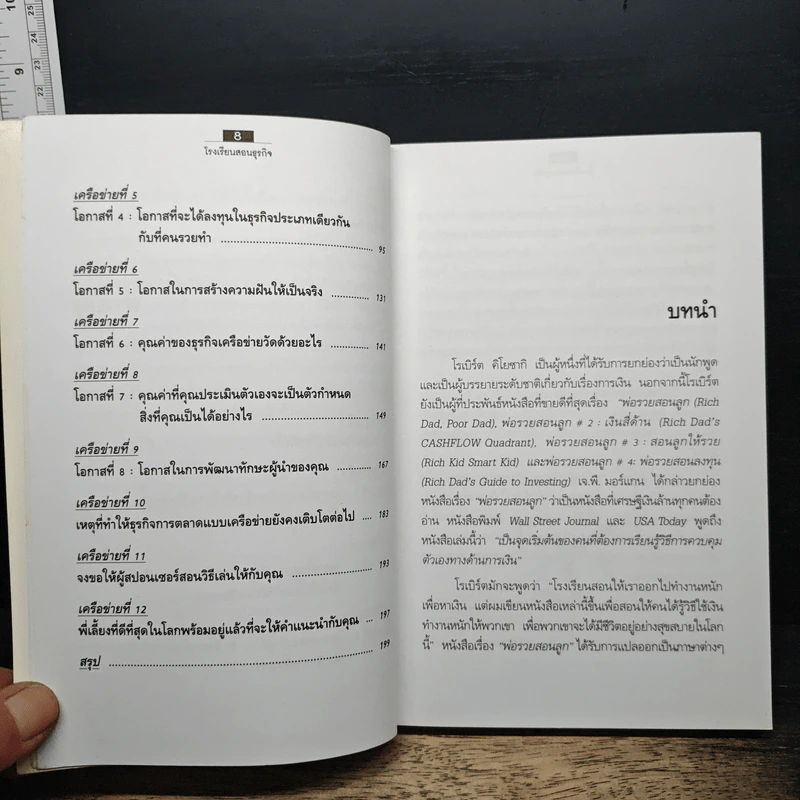 8
โรงเรียนสอนธุรกิจ
เครือข่ายที่ 5
โอกาสที่ 4 : โอกาสที่จะได้ลงทุนในธุรกิจประเภทเดียวกัน
กับที่คนรวยทำ ........................................ 95
เครือข่ายที่ 6
โอกาสที่ 5 : โอกาสในการสร้างความฝันให้เป็นจริง ............ 131
เครือข่ายที่ 7
โอกาสที่ 6 : คุณค่าของธุรกิจเครือข่ายวัดด้วยอะไร ............ 141
เครือข่ายที่ 8
โอกาสที่ 7 : คุณค่าที่คุณประเมินตัวเองจะเป็นตัวกำหนด
สิ่งที่คุณเป็นได้อย่างไร ................................ 149
เครือข่ายที่ 9
โอกาสที่ 8 : โอกาสในการพัฒนาทักษะผู้นำของคุณ ............ 167
เครือข่ายที่ 10
เหตุที่ทำให้ธุรกิจการตลาดแบบเครือข่ายยังคงเติบโตต่อไป .... 183
เครือข่ายที่ 11
จงขอให้ผู้สปอนเซอร์สอนวิธีเล่นให้กับคุณ .................... 193
เครือข่ายที่ 12
พี่เลี้ยงที่ดีที่สุดในโลกพร้อมอยู่แล้วที่จะให้คำแนะนำกับคุณ ... 197
สรุป ................................................................ 199
บทนำ
โรเบิร์ต คิโยซากิ เป็นผู้หนึ่งที่ได้รับการยกย่องว่าเป็นนักพูด
และเป็นผู้บรรยายระดับชาติเกี่ยวกับเรื่องการเงิน นอกจากนี้โรเบิร์ต
ยังเป็นผู้ที่ประพันธ์หนังสือที่ขายดีที่สุดเรื่อง "พ่อรวยสอนลูก (Rich
Dad, Poor Dad), พ่อรวยสอนลูก # 2 : เงินสี่ด้าน (Rich Dad's
CASHFLOW Quadrant), พ่อรวยสอนลูก # 3 : สอนลูกให้รวย
(Rich Kid Smart Kid) และพ่อรวยสอนลูก # 4: พ่อรวยสอนลงทุน
(Rich Dad's Guide to Investing) เจ.พี. มอร์แกน ได้กล่าวยกย่อง
หนังสือเรื่อง "พ่อรวยสอนลูก" ว่าเป็นหนังสือที่เศรษฐีเงินล้านทุกคนต้อง
อ่าน หนังสือพิมพ์ Wall Street Journal และ USA Today พูดถึง
หนังสือเล่มนี้ว่า "เป็นจุดเริ่มต้นของคนที่ต้องการเรียนรู้วิธีการควบคุม
ตัวเองทางด้านการเงิน"
โรเบิร์ตมักจะพูดว่า "โรงเรียนสอนให้เราออกไปทำงานหนัก
เพื่อหาเงิน แต่ผมเขียนหนังสือเหล่านี้ขึ้นเพื่อสอนให้คนได้รู้วิธีใช้เงิน
ทำงานหนักให้พวกเขา เพื่อพวกเขาจะได้มีชีวิตอยู่อย่างสุขสบายในโลก
นี้" หนังสือเรื่อง "พ่อรวยสอนลูก" ได้รับการแปลออกเป็นภาษาต่างๆ
10
9
25
24
23
22